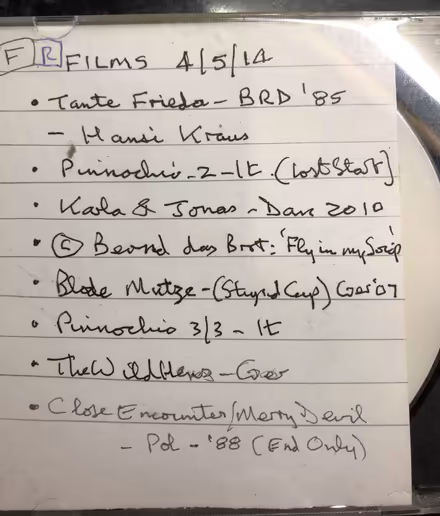 F R FILMS 4/5/14
• Tante Frieda - BRD '85
- Hansi Kraus
• Pinnochio - 2 - It. (Lost Start)
• Karla & Jonas - Dan 2010
• © Bernd das Brot: 'Fly in my Soup'
• Blöde Mütze - (Stupid Cap) Ger '07
• Pinnochio 3/3 - It
• The Wild Hens - Ger
• Close Encounter/Merry Devil
- Pol - '88 (End Only)